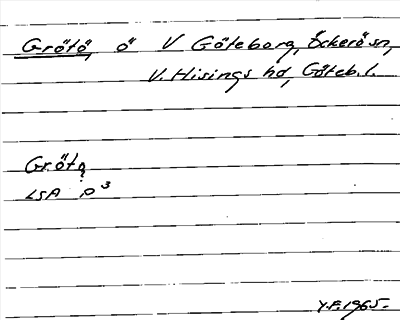 Grötö, ö V Göteborg, Öckerö sn,
V. Hisings hd, Göteb. l.
Gröta
LSA P3
Y.F. 1965.